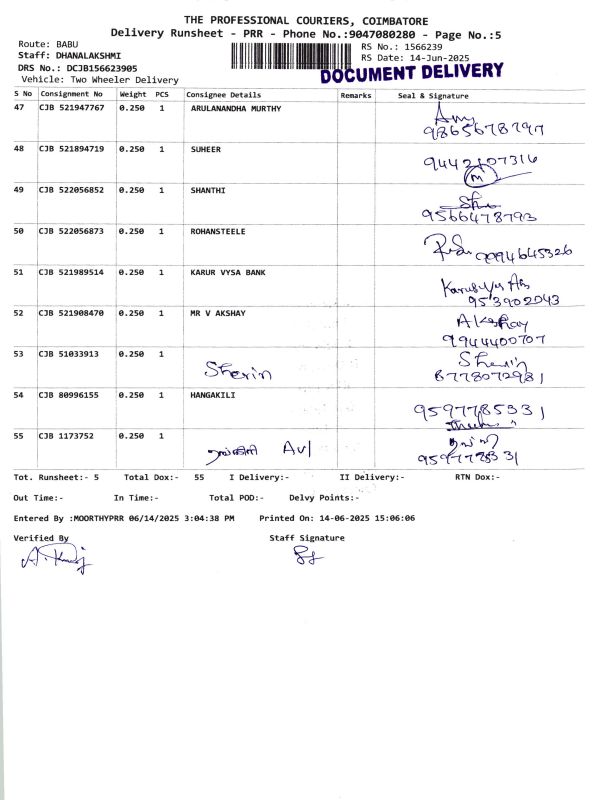 THE PROFESSIONAL COURIERS, COIMBATORE
Delivery Runsheet - PRR - Phone No.:9047080280 - Page No.:5
Route: BABU
RS No.: 1566239
Staff: DHANALAKSHMI
RS Date: 14-Jun-2025
DRS No.: DCJB156623905
DOCUMENT DELIVERY
Vehicle: Two Wheeler Delivery
S No Consignment No Weight PCS Consignee Details Remarks Seal & Signature
47 CJB 521947767 0.250 1 ARULANANDHA MURTHY
9865678797
48 CJB 521894719 0.250 1 SUHEER
9442107316
M
49 CJB 522056852 0.250 1 SHANTHI
9566478793
50 CJB 522056873 0.250 1 ROHANSTEELE
9994645326
51 CJB 521989514 0.250 1 KARUR VYSA BANK
953902043
52 CJB 521908470 0.250 1 MR V AKSHAY
Akshay
9944400707
53 CJB 51033913 0.250 1
Sherin Sherin
8778072981
54 CJB 80996155 0.250 1 HANGAKILI
9597785331
55 CJB 1173752 0.250 1
Tot. Runsheet:- 5 Total Dox:- 55 I Delivery:- II Delivery:- RTN Dox:-
Out Time:- In Time:- Total POD:- Delvy Points:-
Entered By :MOORTHYPRR 06/14/2025 3:04:38 PM Printed On: 14-06-2025 15:06:06
Verified By Staff Signature